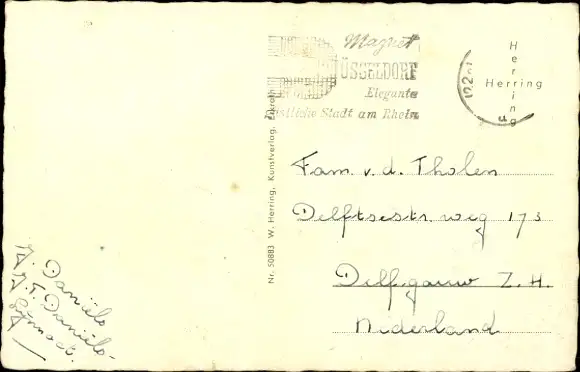 Magnet
ÜSSELDORF
Elegante
stliche Stadt am Rhein
Herring
Herring
Nr. 50883 W. Herring, Kunstverlag, Erkrath
Fam. v. d. Tholen
Delftsestr. weg 173
Delfgauw Z. H.
Nederland
J. Daniëls
T. Daniëls-